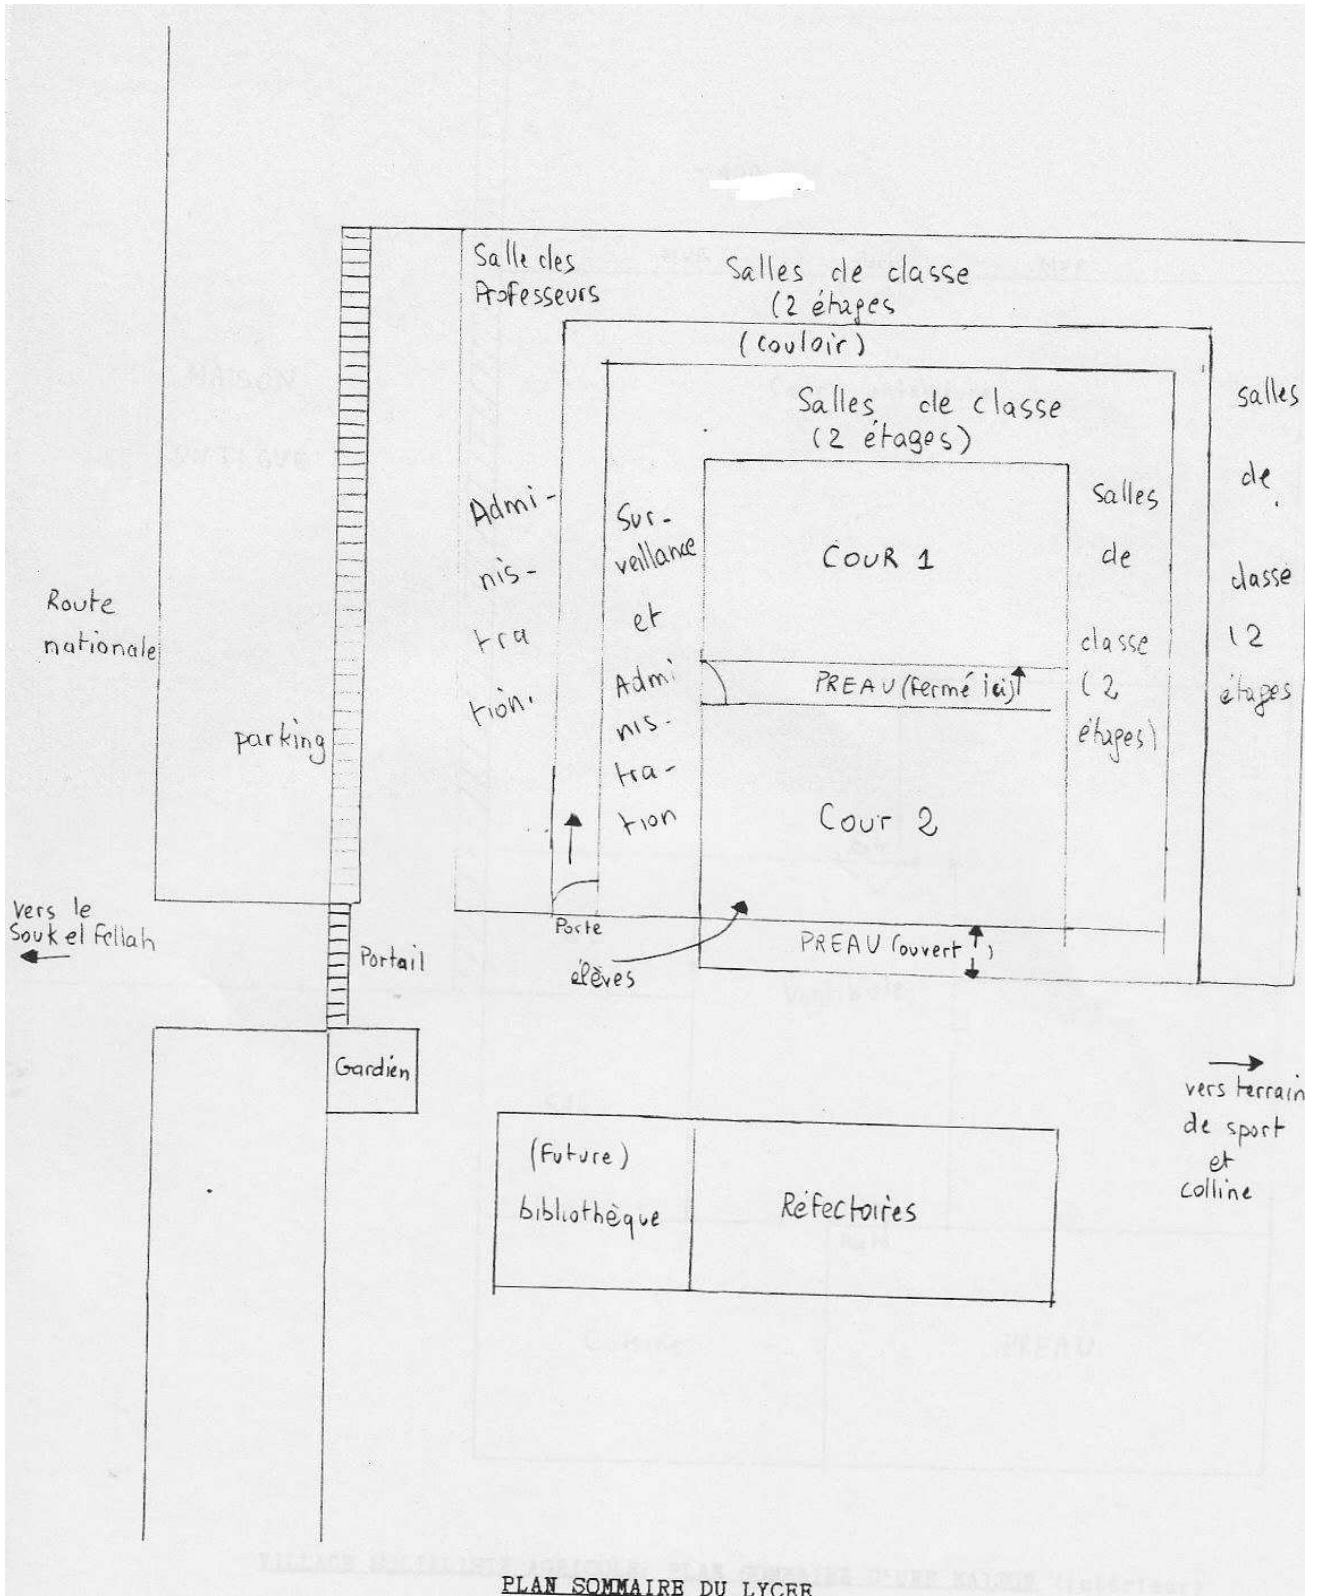 Salle des
Professeurs
Salles de classe
(2 étages
(couloir)
Salles de classe
(2 étages)
salles
de
classe
(2
étages
Admi-
nis-
tra
tion.
Sur-
veillance
et
Admi
nis-
tra-
tion
COUR 1
Salles
de
classe
(2
étages)
Route
nationale
PREAU (fermé ici)
parking
Cour 2
vers le
Souk el Fellah
Portail
Porte
élèves
PREAU (ouvert)
Gardien
vers terrain
de sport
et
colline
(Future)
bibliothèque
Réfectoires
PLAN SOMMAIRE DU LYCEE